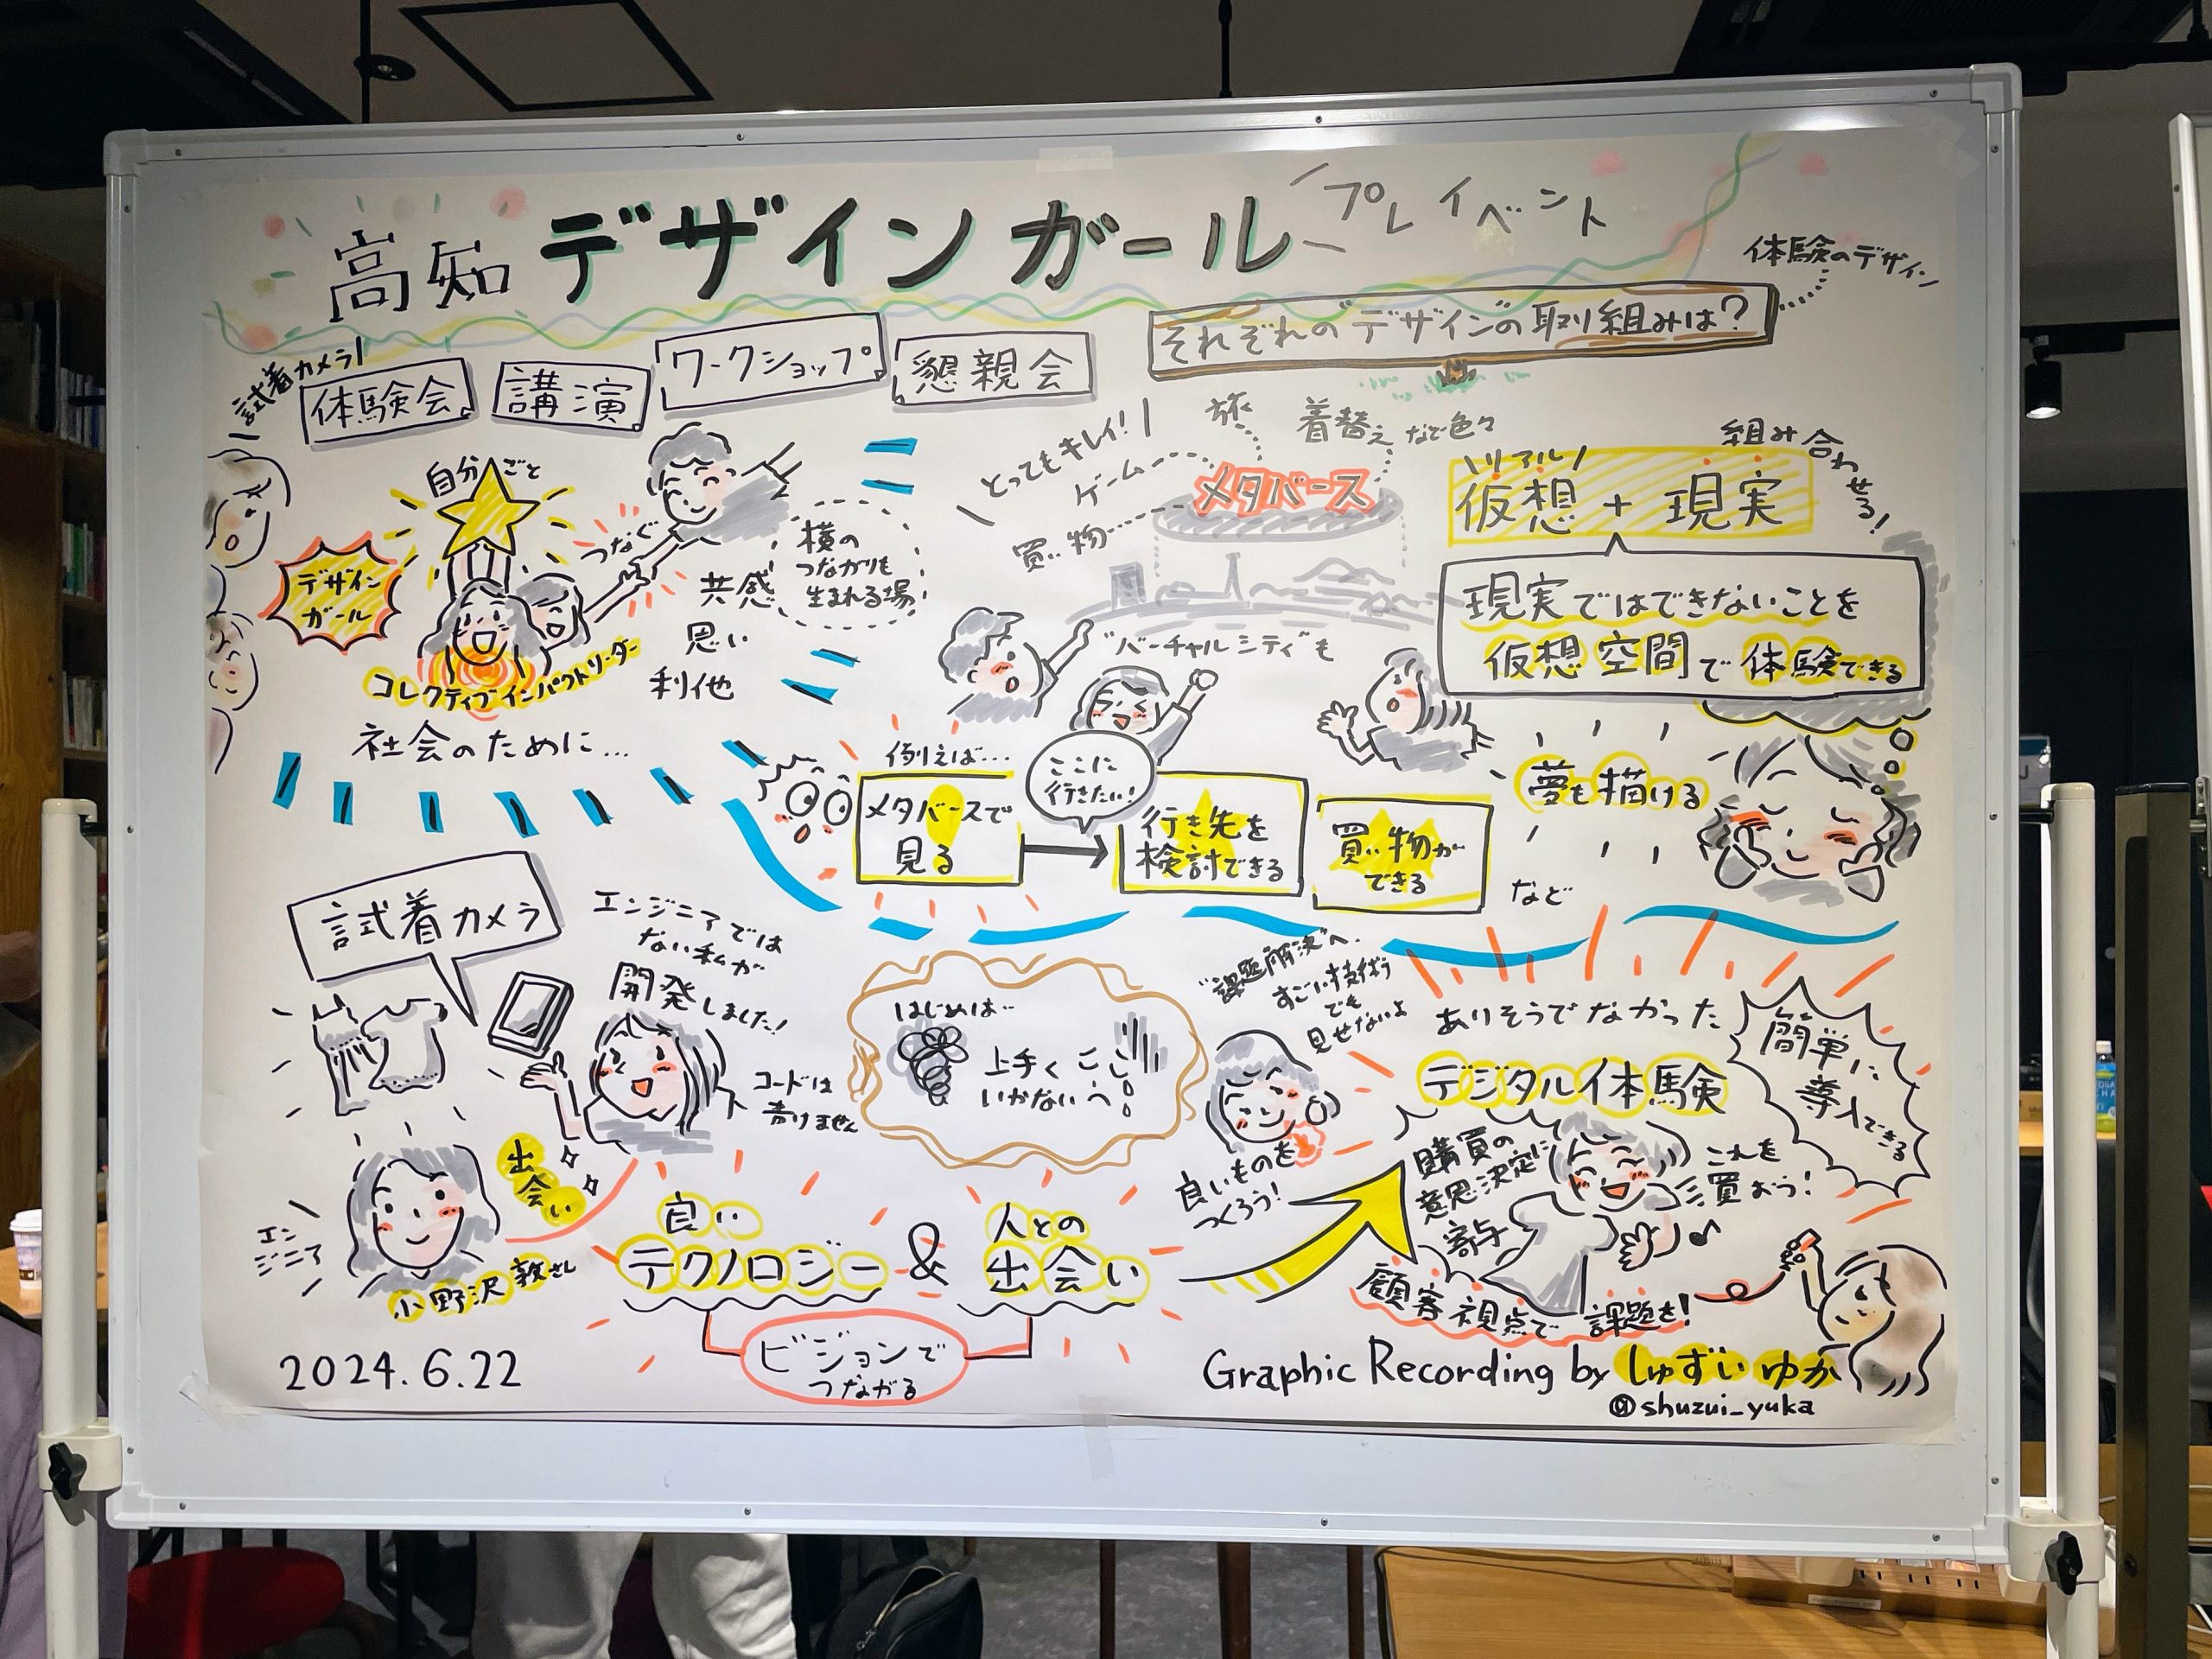 高知 デザインガール プレイベント
試着カメラ!
体験会
講演
ワークショップ
懇親会
自分ごと
つなぐ
デザイン
ガール
コレクティブインパクトリーダー
社会のために…
共感
思い
利他
横の
つながりも
生まれる場!
体験のデザイン
それぞれのデザインの取り組みは?
とってもキレイ!
ゲーム
買い物
旅
着替え など色々
メタバース
"バーチャルシティ"も
組み合わせる!
リアル
仮想 + 現実
現実ではできないことを
仮想空間で体験できる
夢も描ける
例えば…
メタバースで
見る
ここに
行きたい!
行き先を
検討できる
買い物が
できる
など
試着カメラ
エンジニアでは
ない私が
開発しました!
コードは
書けません
出会い
エン
ジニア
小野沢 敦さん
はじめは…
上手く
いかない
"課題解決"へ.
すごい技術
でも
見せないよ
良いものを
つくろう!
良い
テクノロジー
&
人との
出会い
ビジョンで
つながる
ありそうでなかった
デジタル体験
簡単に
導入できる
購買の
意思決定に
寄与
これを
買おう!
顧客視点で 課題を!
2024.6.22
Graphic Recording by しゅずい ゆか
@shuzui_yuka